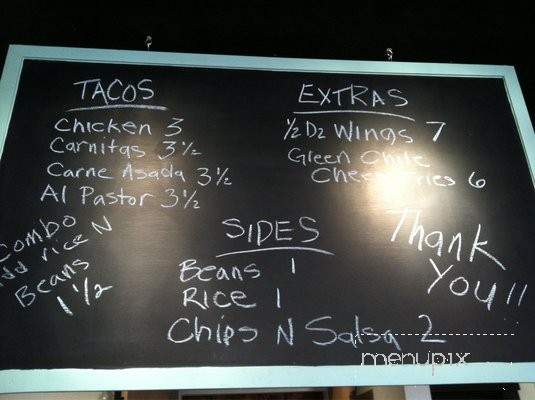 TACOS
Chicken 3
Carnitas 3½
Carne Asada 3½
Al Pastor 3½
EXTRAS
½ Dz Wings 7
Green Chile
Cheese Fries 6
Combo
Add rice N
Beans
1½
SIDES
Beans 1
Rice 1
Chips N Salsa 2
Thank
You!!
menupix